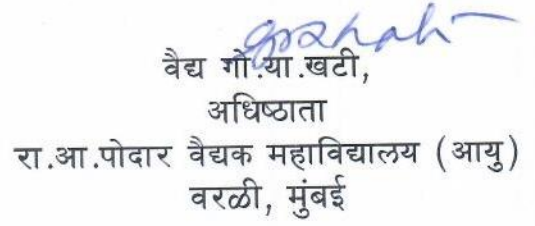 वैद्य गो.या.खटी,
अधिष्ठाता
रा.आ.पोदार वैद्यक महाविद्यालय (आयु)
वरळी, मुंबई